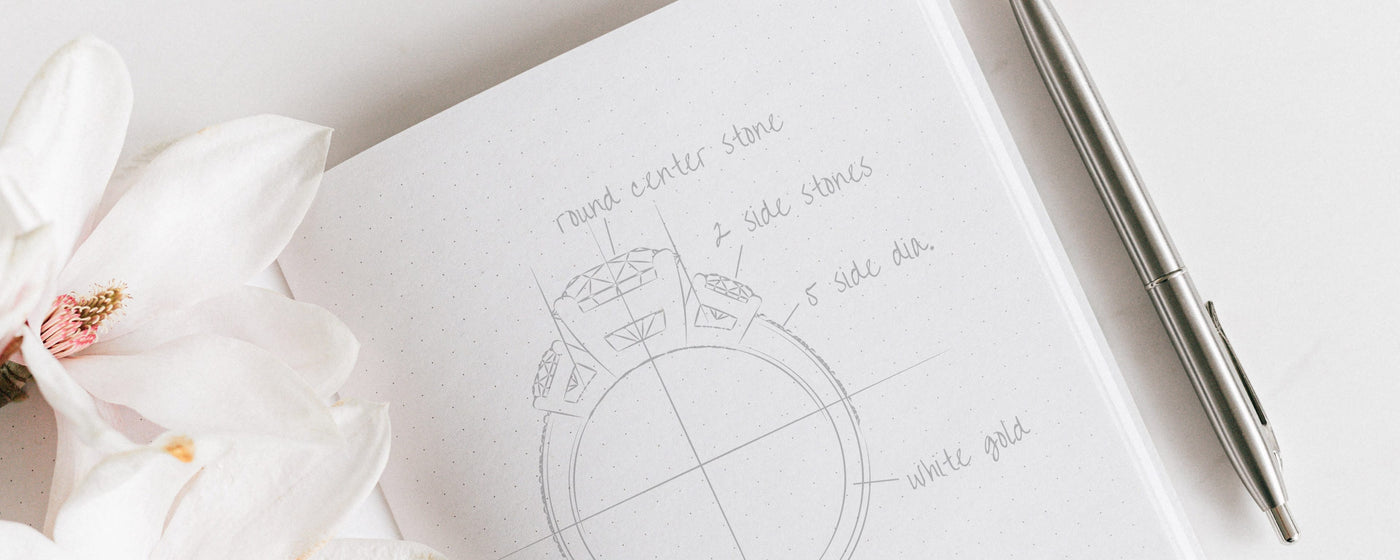 round center stone
2 side stones
5 side dia.
white gold